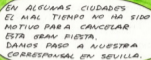 EN ALGUNAS CIUDADES
EL MAL TIEMPO NO HA SIDO
MOTIVO PARA CANCELAR
ESTA GRAN FIESTA.
DAMOS PASO A NUESTRA
CORRESPONSAL EN SEVILLA.